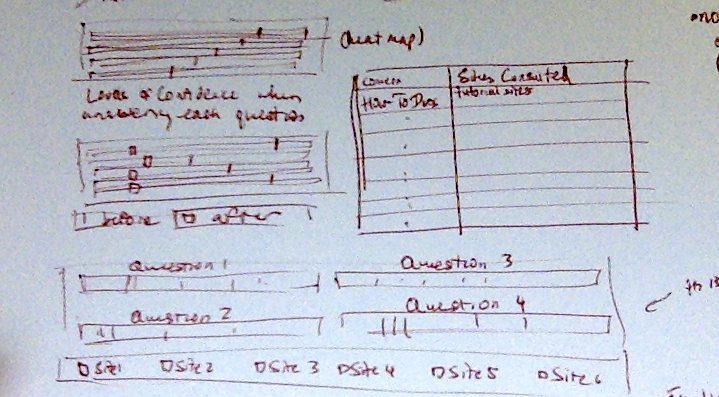 (heat map)
Levels of Confidence when
answering each question
before after
Sites Consulted
How-To Docs
tutorial sites
Question 1
Question 3
Question 2
Question 4
Site 1 Site 2 Site 3 Site 4 Site 5 Site 6